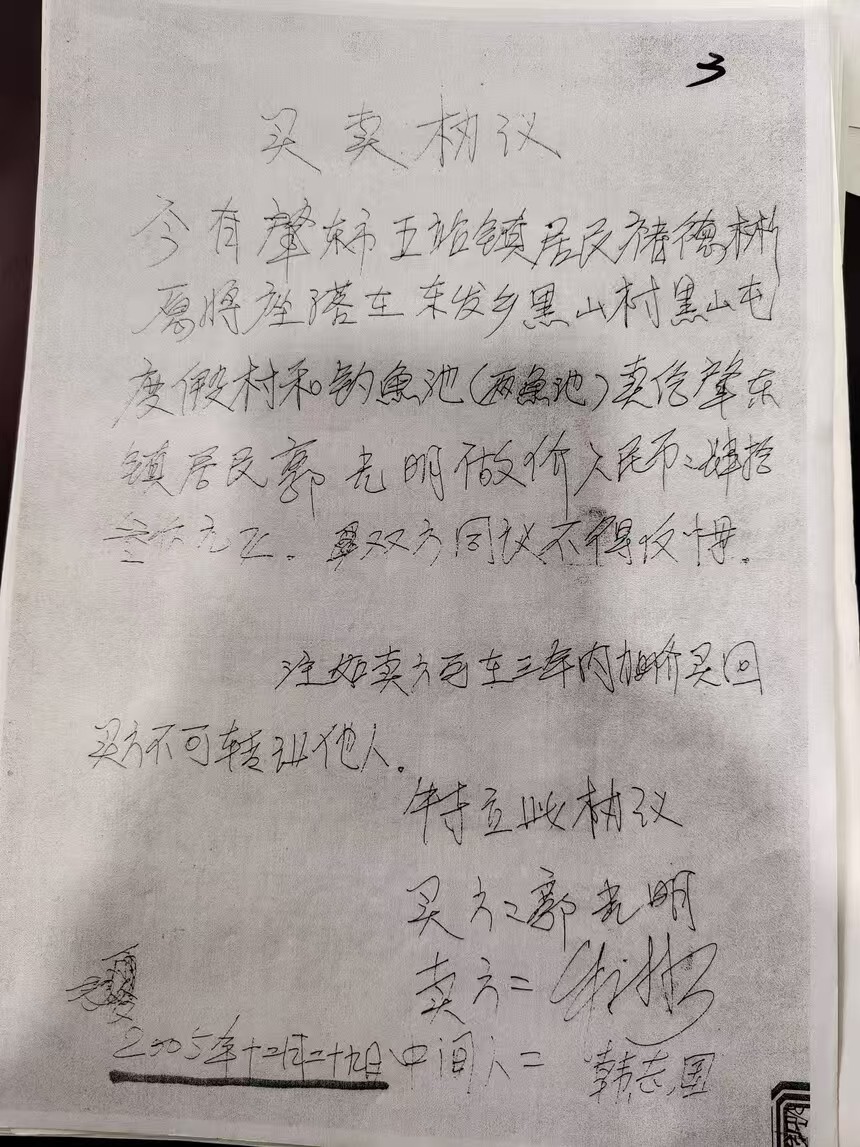 3
买卖协议
今有肇东市五站镇居民褚德彬
愿将座落在东发乡黑山村黑山屯
度假村和钓鱼池(两鱼池)卖给肇东
镇居民郭光明做价人民币:肆拾
叁万元正。双方同议不得反悔。
注如卖方可在三年内加价买回
买方不可转让他人。
特立此协议
买方:郭光明
卖方:
2005年十二月二十九日 中间人:韩志国